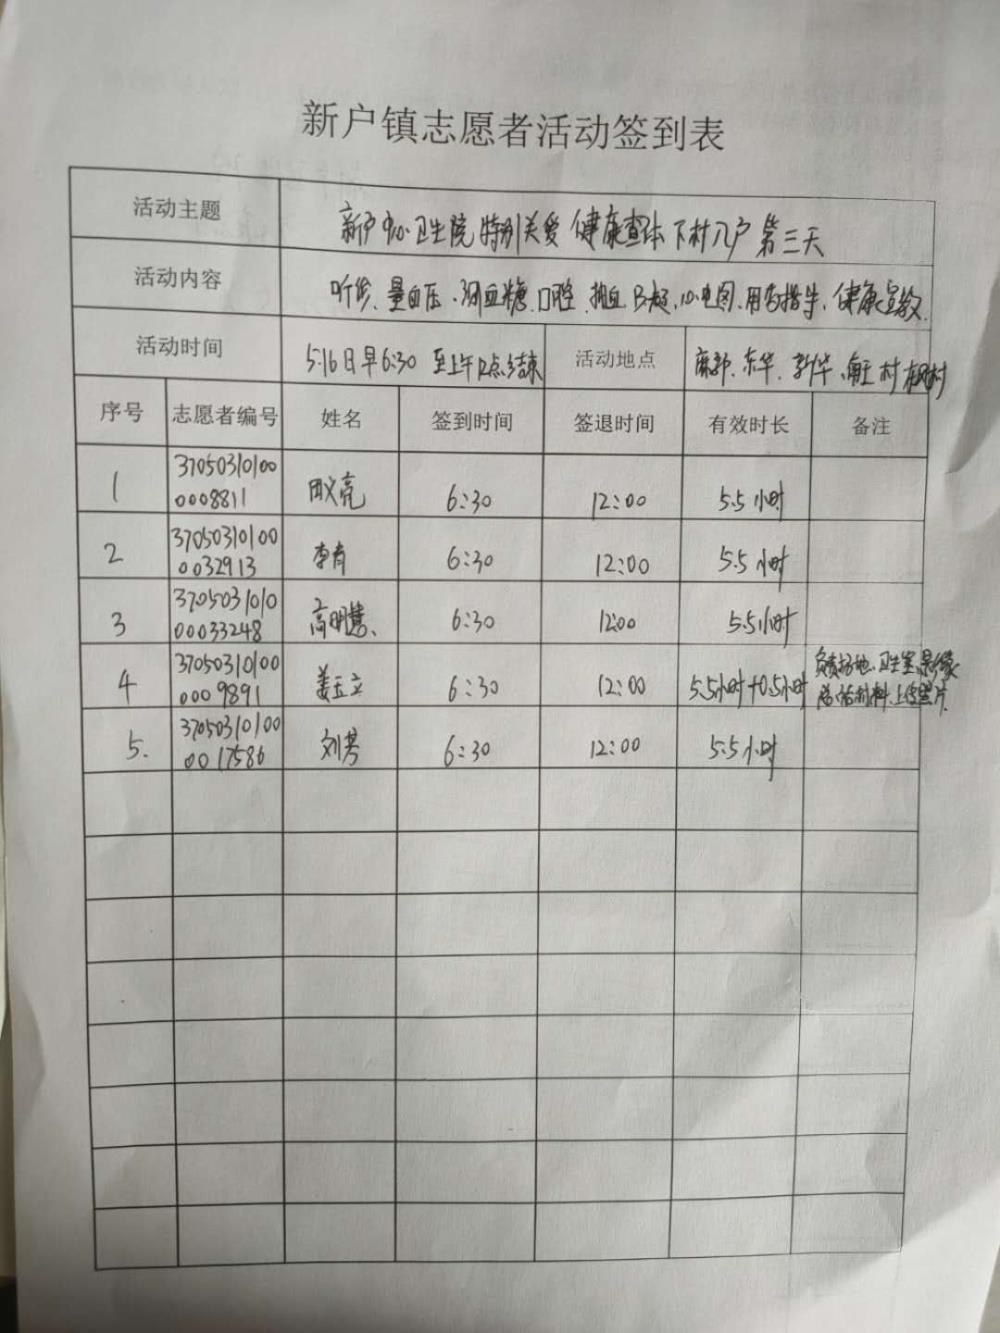 新户镇志愿者活动签到表
活动主题 新户中心卫生院特别关爱 健康查体 下村入户 第三天
活动内容 听诊、量血压、测血糖、口腔、抽血、B超、心电图、用药指导、健康宣教.
活动时间 5.16日早6:30 至上午12点结束 活动地点 东华、新华、村
序号 志愿者编号 姓名 签到时间 签退时间 有效时长 备注
1 3705031010 6:30 12:00 5.5小时
0008811
2 37050310100 李育 6:30 12:00 5.5小时
0032913
3 3705031010 高明慧、 6:30 12:00 5.5小时
00033248
4 37050310100 姜玉立 6:30 12:00 5.5小时+0.5小时 负责场地、卫生室
0009891 材料、上传照片
5. 37050310100 刘芳 6:30 12:00 5.5小时
0017586